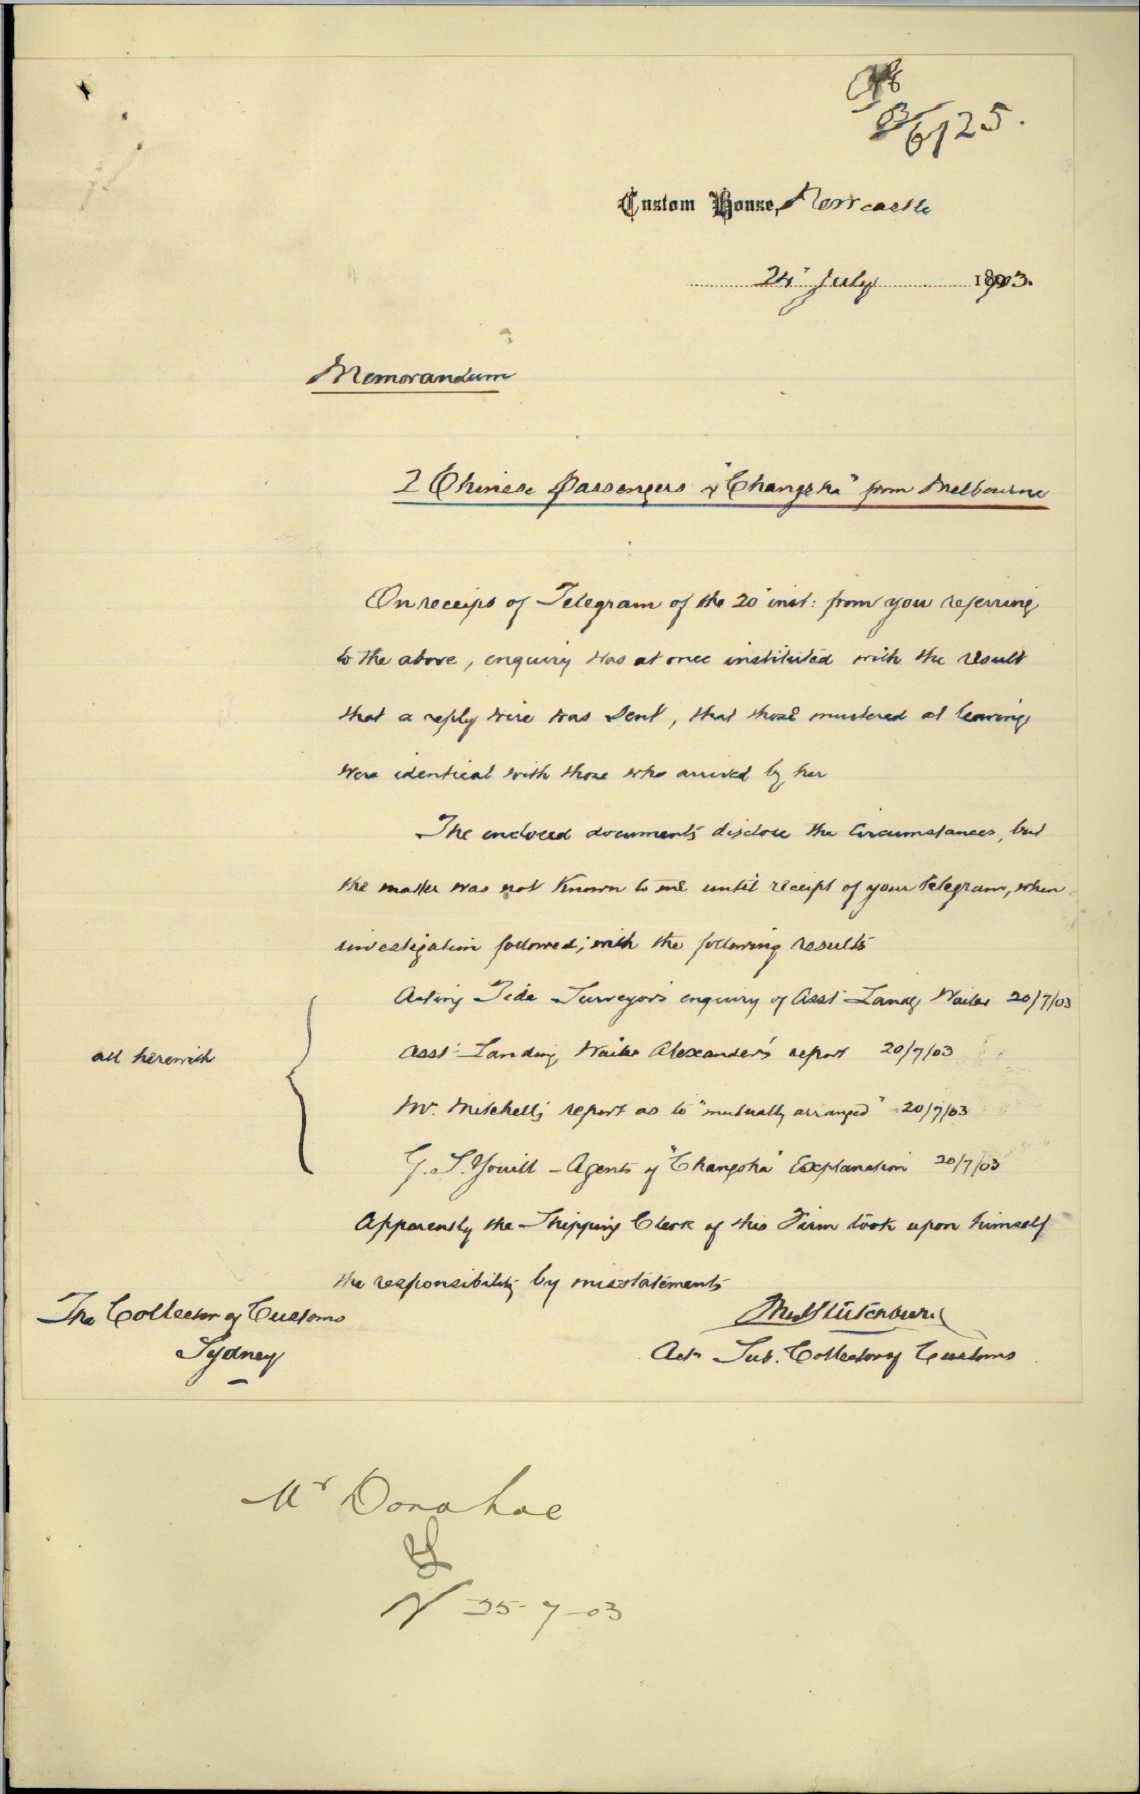 03/6125.
Custom House, Newcastle
24 July 1903.
Memorandum
2 Chinese passengers p "Changsha" from Melbourne
On receipt of Telegram of the 20 inst: from you referring
to the above, enquiry was at once instituted with the result
that a reply wire was sent, that those mustered at leaving
were identical with those who arrived by her
The enclosed documents disclose the circumstances, but
the matter was not known to me until receipt of your telegram, when
investigation followed; with the following results
Acting Tide Surveyor's enquiry of Asst Landg Waiter 20/7/03
all herewith
Asst Landing Waiter Alexander's report 20/7/03
Mr. Mitchell's report as to "mutually arranged" 20/7/03
G. S. Youill - Agents of "Changsha" Explanation 20/7/03
Apparently the Shipping Clerk of this Firm took upon himself
the responsibility by misstatements
The Collector of Customs
Sydney
Actg Sub. Collector of Customs
Mr Donohoe
25-7-03